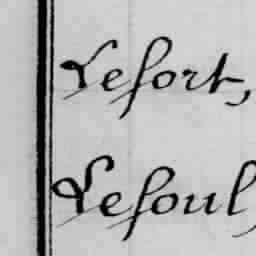 Lefort,
Lesoul